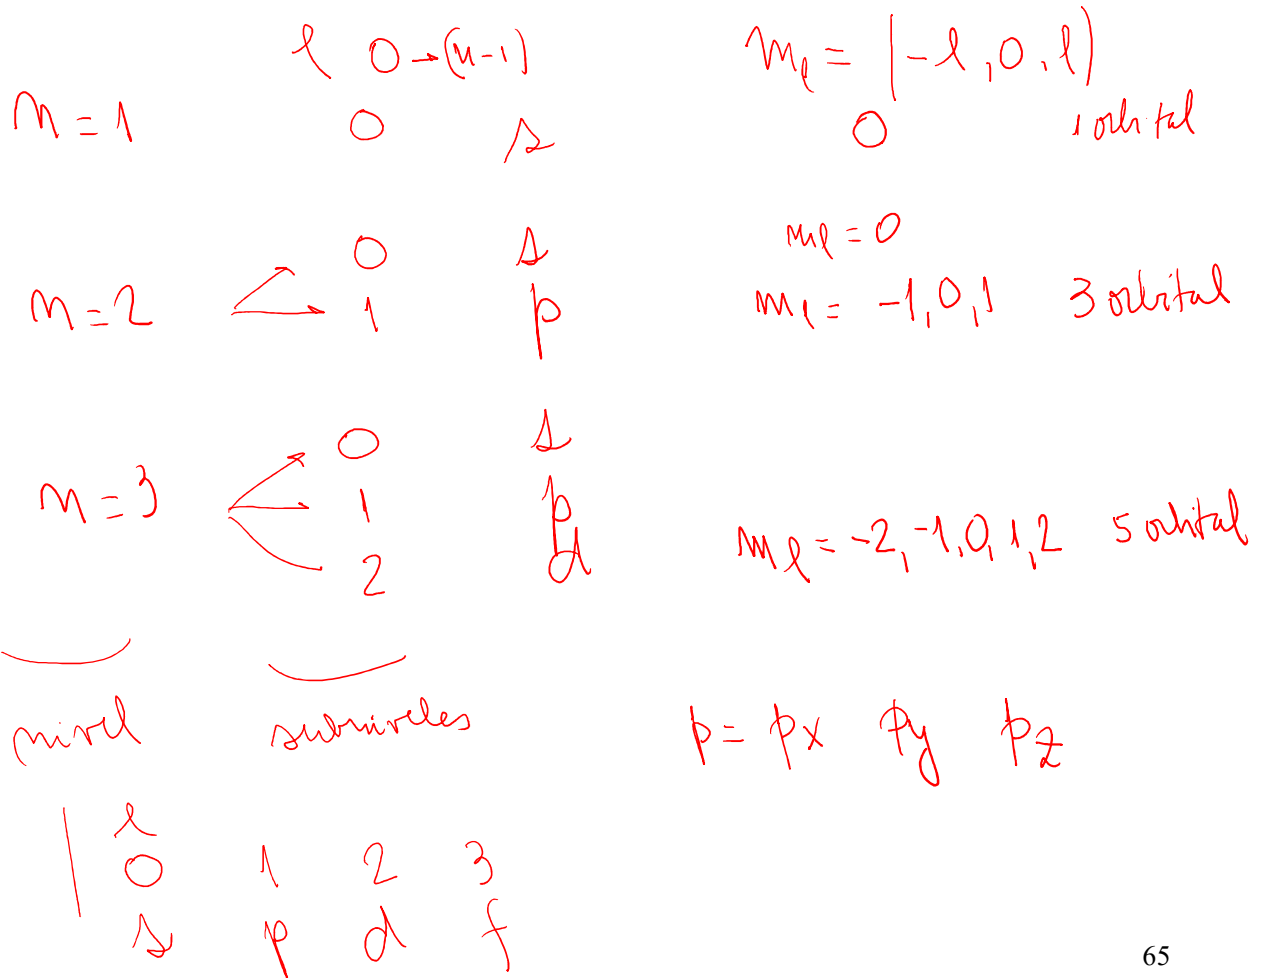 l 0→(n-1) mₗ = (-l, 0, l)
n = 1 0 s 0 1 orbital
0 s mₗ = 0
n = 2 1 p mₗ = -1, 0, 1 3 orbital
0 s
n = 3 1 p
2 d mₗ = -2, -1, 0, 1, 2 5 orbital
nivel subniveles p = px py pz
l
0 1 2 3
s p d f
65